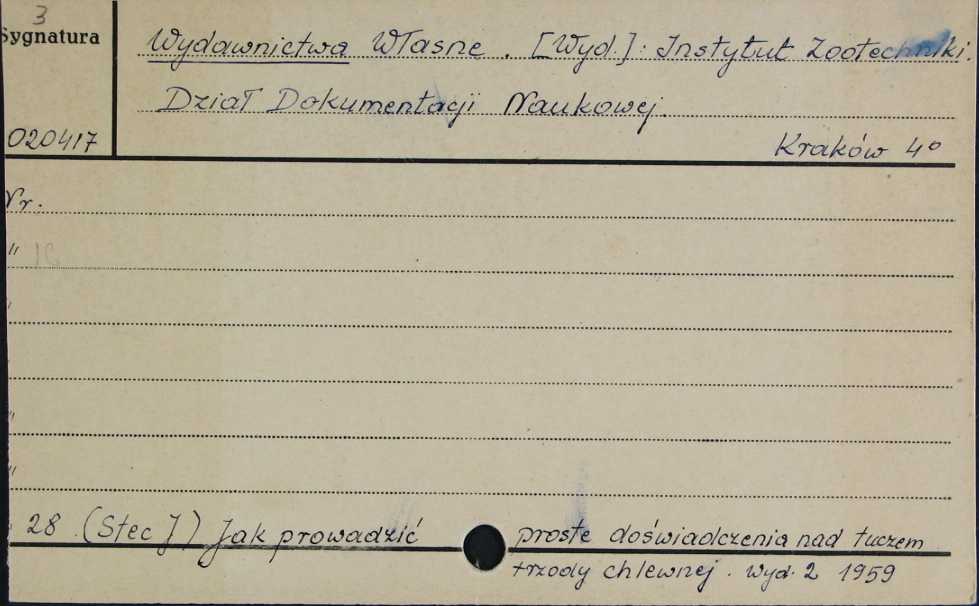 3
Sygnatura
Wydawnictwa Własne. [Wyd.]: Instytut Zootechniki.
Dział Dokumentacji Naukowej.
020417
Kraków 4°
Nr.
"
"
"
"
"
" 28 (Stec J) Jak prowadzić proste doświadczenia nad tuczem
trzody chlewnej. Wyd. 2 1959